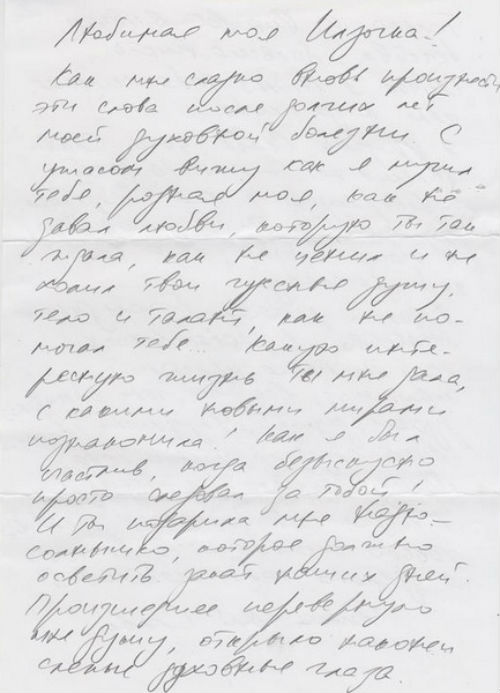 Любимая моя Илзочка!
Как мне сладко вновь произнести
эти слова после долгих лет
моей духовной болезни. С
ужасом вижу как я мучил
тебя, родная моя, как не
давал любви, которую ты так
ждала, как не ценил и не
холил твои душу,
тело и талант, как не по-
могал тебе... Какую инте-
ресную жизнь ты мне дала,
с какими новыми мирами
познакомила! Как я был
счастлив, когда
просто следовал за тобой!
И ты подарила мне
солнышко, которое должно
осветить закат наших дней.
Произошедшее перевернуло
мне душу, открыло наконец
слепые духовные глаза.